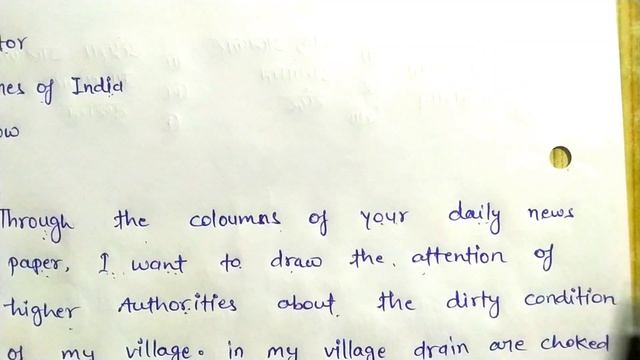 tor
mes of India
ow
Through the coloumns of your daily news
paper, I want to draw the attention of
higher Authorities about the dirty condition
of my village. in my village drain are choked